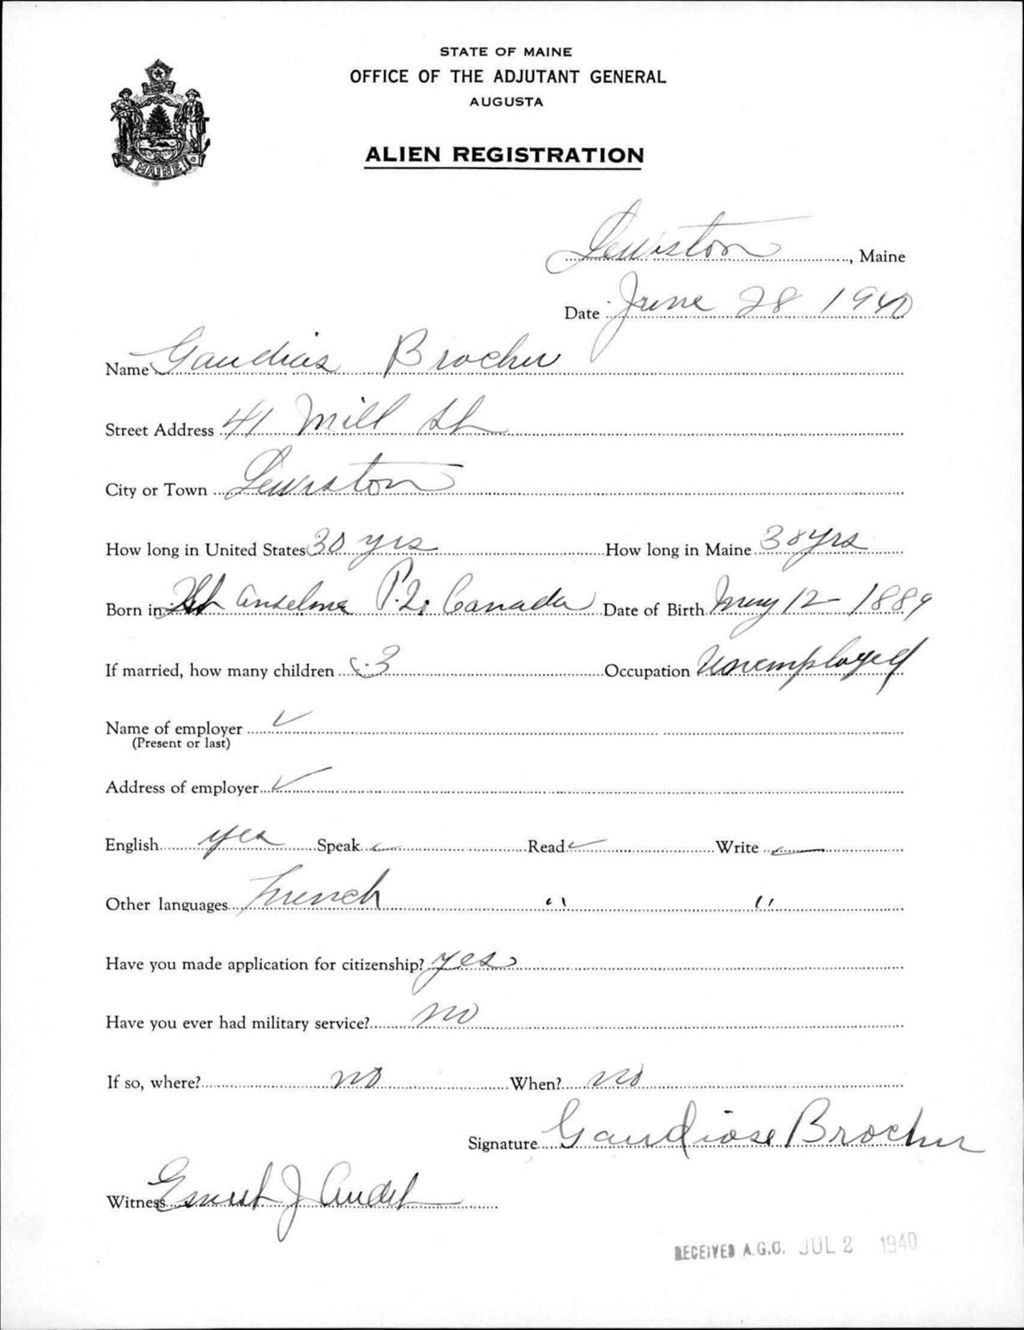 STATE OF MAINE
OFFICE OF THE ADJUTANT GENERAL
AUGUSTA
ALIEN REGISTRATION
MAINE
Lewiston, Maine
Date June 28 1940
Name Gaudias Brochu
Street Address 41 Mill St
City or Town Lewiston
How long in United States 30 yrs How long in Maine 30 yrs
Born in St Anselme P.Q. Canada Date of Birth May 12 - 1889
If married, how many children 3 Occupation Unemployed
Name of employer ✓
(Present or last)
Address of employer ✓
English yes Speak ✓ Read ✓ Write ✓
Other languages French " "
Have you made application for citizenship? yes
Have you ever had military service? no
If so, where? no When? no
Signature Gaudiose Brochu
Witness Ernest J Audet
RECEIVED A.G.O. JUL 2 1940